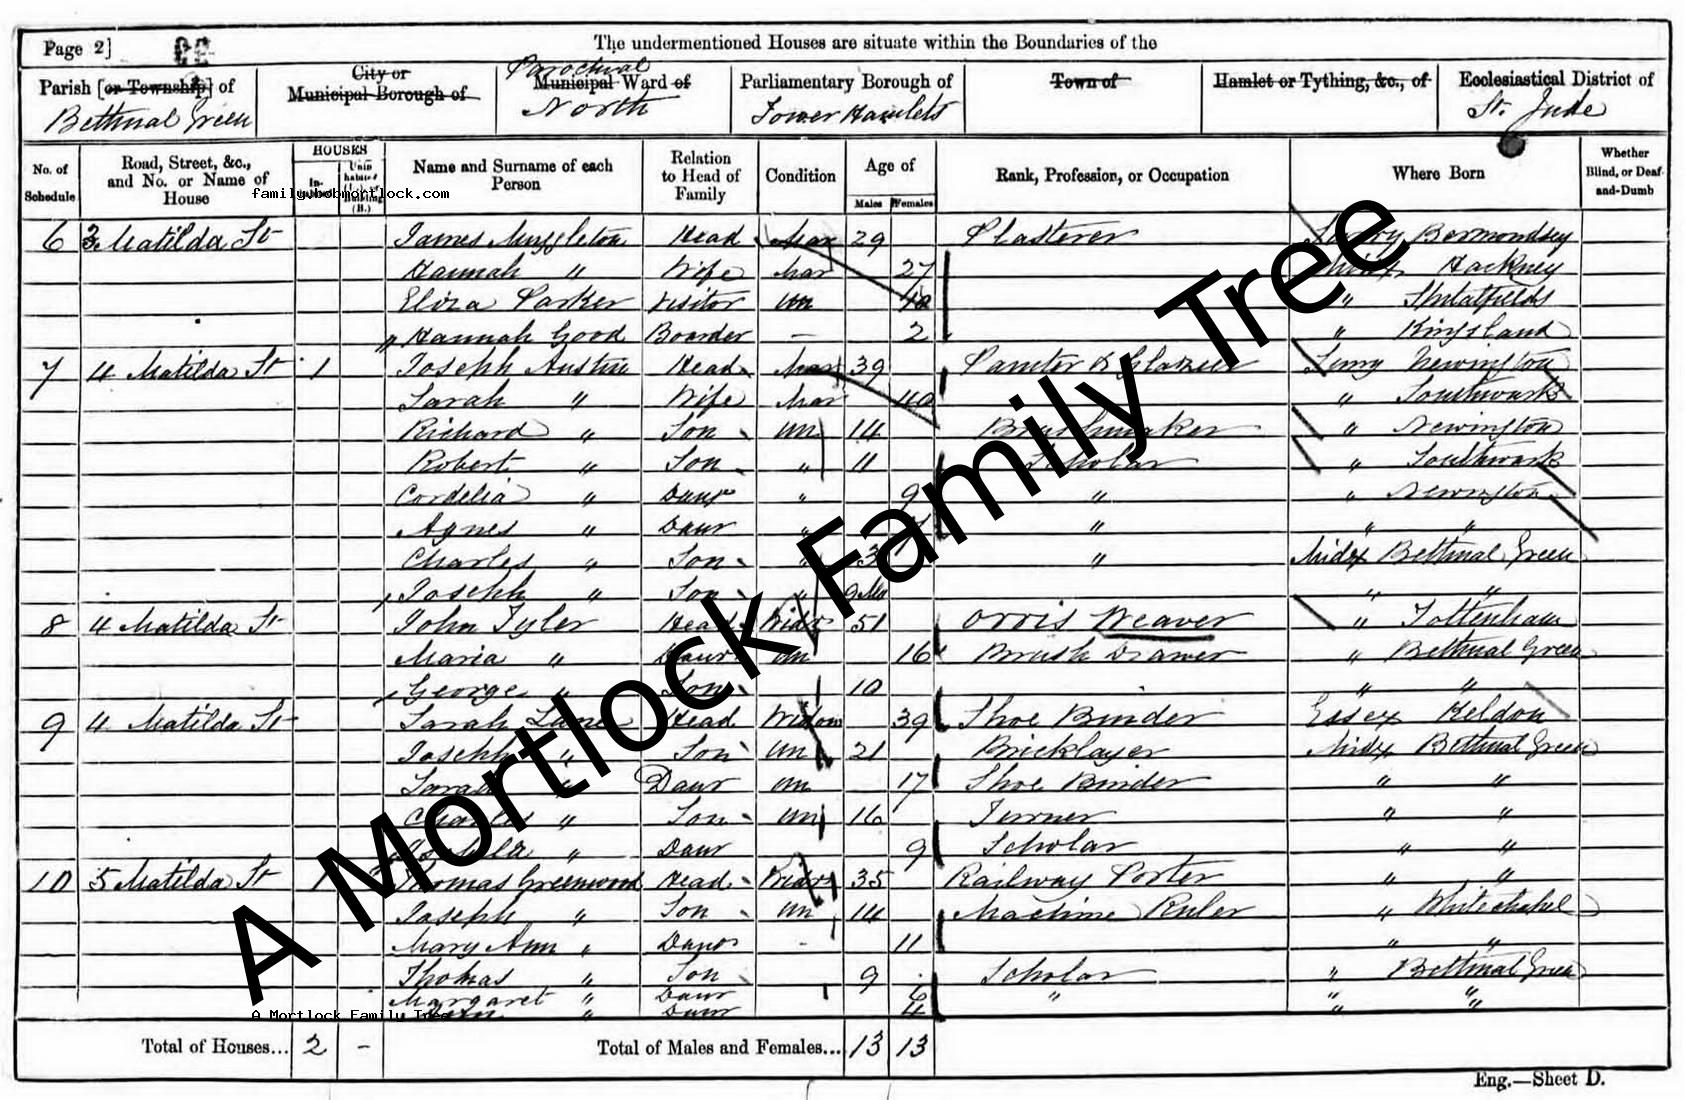 Page 2]
The undermentioned Houses are situate within the Boundaries of the
Parish [or Township] of Bethnal Green
City or Municipal Borough of
Parochial Municipal Ward of North
Parliamentary Borough of Tower Hamlets
Town of
Hamlet or Tything, &c., of
Ecclesiastical District of St. Jude
No. of Schedule
Road, Street, &c., and No. or Name of House
HOUSES
Name and Surname of each Person
Relation to Head of Family
Condition
Age of
Males Females
Rank, Profession, or Occupation
Where Born
Whether Blind, or Deaf-and-Dumb
family.bobmortlock.com
6 3 Matilda St James Muggleton Head Mar 29 Plasterer Surrey Bermondsey
Hannah " Wife Mar 27 Hackney
Eliza Parker Visitor Un " Spitalfields
Hannah Good Boarder - 2 " Kingsland
7 4 Matilda St 1 Joseph Austin Head Mar 39 Painter & Glazier Newington
Sarah " Wife Mar 40 " Southwark
Richard " Son Un 14 Brushmaker " Newington
Robert " Son " 11 Scholar " Southwark
Cordelia " Daur " 9 " " Newington
Agnes " Daur " " " "
Charles " Son " 3 " Midx Bethnal Green
Joseph " Son " 9 Mo " "
8 4 Matilda St John Tyler Head Widr 51 Orris Weaver " Tottenham
Maria " Daur Un 16 Brush Drawer " Bethnal Green
George " Son 10 " "
9 4 Matilda St Sarah Head Widow 39 Shoe Binder Essex Keldon
Joseph " Son Un 21 Bricklayer Midx Bethnal Green
Sarah " Daur Un 17 Shoe Binder " "
Charles " Son Un 16 Turner " "
" Daur 9 Scholar " "
10 5 Matilda St 1 Thomas Greenwood Head Widr 35 Railway Porter " "
Joseph " Son Un 14 Machine Ruler " Whitechapel
Mary Ann " Daur - 11 " "
Thomas " Son 9 Scholar " Bethnal Green
Margaret " Daur 6 " " "
" Daur 4 " "
A Mortlock Family Tree
A Mortlock Family Tree
Total of Houses... 2 -
Total of Males and Females... 13 13
Eng.—Sheet D.